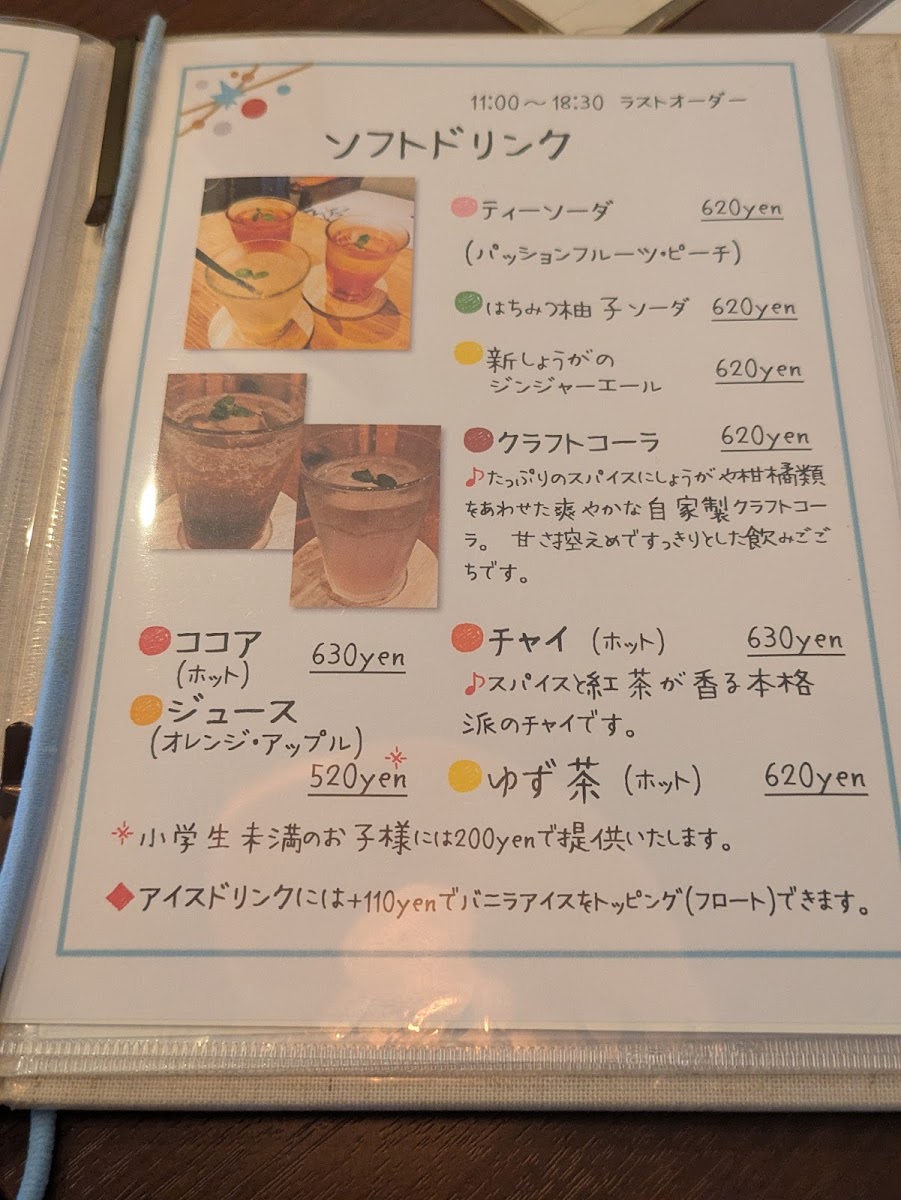 11:00～18:30 ラストオーダー
ソフトドリンク
ティーソーダ 620yen
(パッションフルーツ・ピーチ)
はちみつ柚子ソーダ 620yen
新しょうがの
ジンジャーエール 620yen
クラフトコーラ 620yen
♪たっぷりのスパイスにしょうがや柑橘類
をあわせた爽やかな自家製クラフトコー
ラ。 甘さ控えめですっきりとした飲みごご
ちです。
ココア
(ホット) 630yen
ジュース
(オレンジ・アップル)
520yen※
チャイ (ホット) 630yen
♪スパイスと紅茶が香る本格
派のチャイです。
ゆず茶 (ホット) 620yen
※小学生未満のお子様には200yenで提供いたします。
◆アイスドリンクには+110yenでバニラアイスをトッピング(フロート)できます。